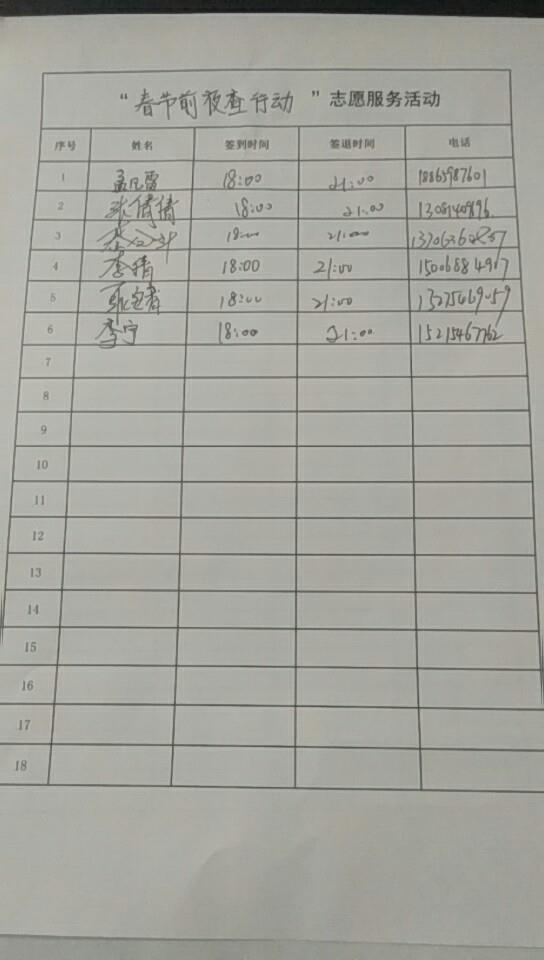 “春节前夜查行动”志愿服务活动
序号 姓名 签到时间 签退时间 电话
1 孟凡雷 18:00 21:00 18865987601
2 张倩倩 18:00 21:00
3 18:00 21:00
4 李倩 18:00 21:00 15006884907
5 18:00 21:00 13275069059
6 李宁 18:00 21:00 15215467762
7
8
9
10
11
12
13
14
15
16
17
18